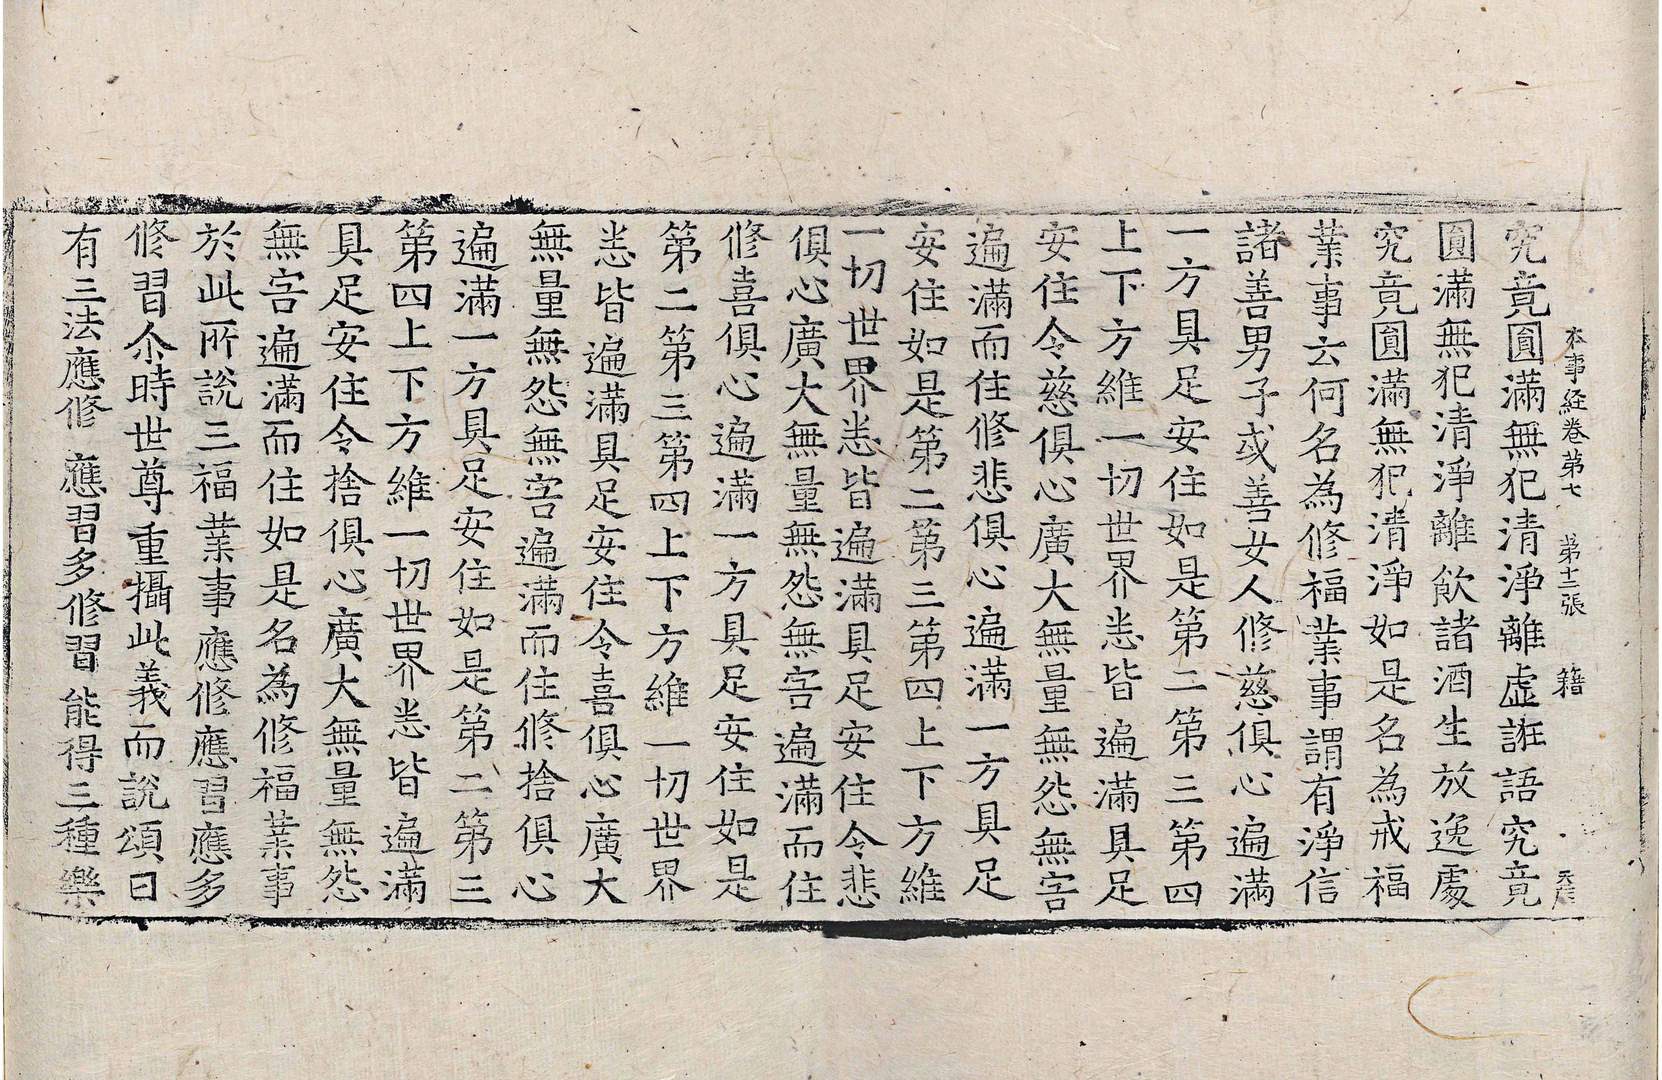 本事経卷第七　第十二張　籍
究竟圓滿無犯清淨離虛誑語究竟
圓滿無犯清淨離飲諸酒生放逸處
究竟圓滿無犯清淨如是名為戒福
業事云何名為修福業事謂有淨信
諸善男子或善女人修慈俱心遍滿
一方具足安住如是第二第三第四
上下方維一切世界悉皆遍滿具足
安住令慈俱心廣大無量無怨無害
遍滿而住修悲俱心遍滿一方具足
安住如是第二第三第四上下方維
一切世界悉皆遍滿具足安住令悲
俱心廣大無量無怨無害遍滿而住
修喜俱心遍滿一方具足安住如是
第二第三第四上下方維一切世界
悉皆遍滿具足安住令喜俱心廣大
無量無怨無害遍滿而住修捨俱心
遍滿一方具足安住如是第二第三
第四上下方維一切世界悉皆遍滿
具足安住令捨俱心廣大無量無怨
無害遍滿而住如是名為修福業事
於此所說三福業事應修應習應多
修習尒時世尊重攝此義而說頌曰
有三法應修　應習多修習　能得三種樂